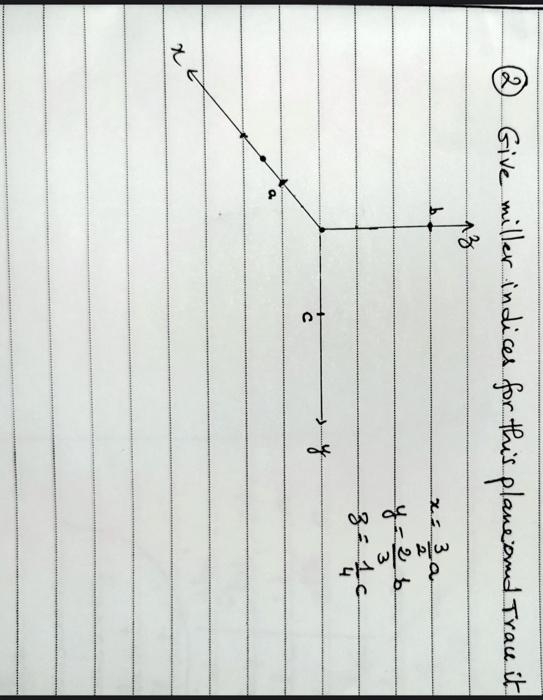 ② Give miller indices for this plane and Trace it
x = 3/2 a
y = 2/3 b
z = 1/4 c
z
b
a
x
c
y